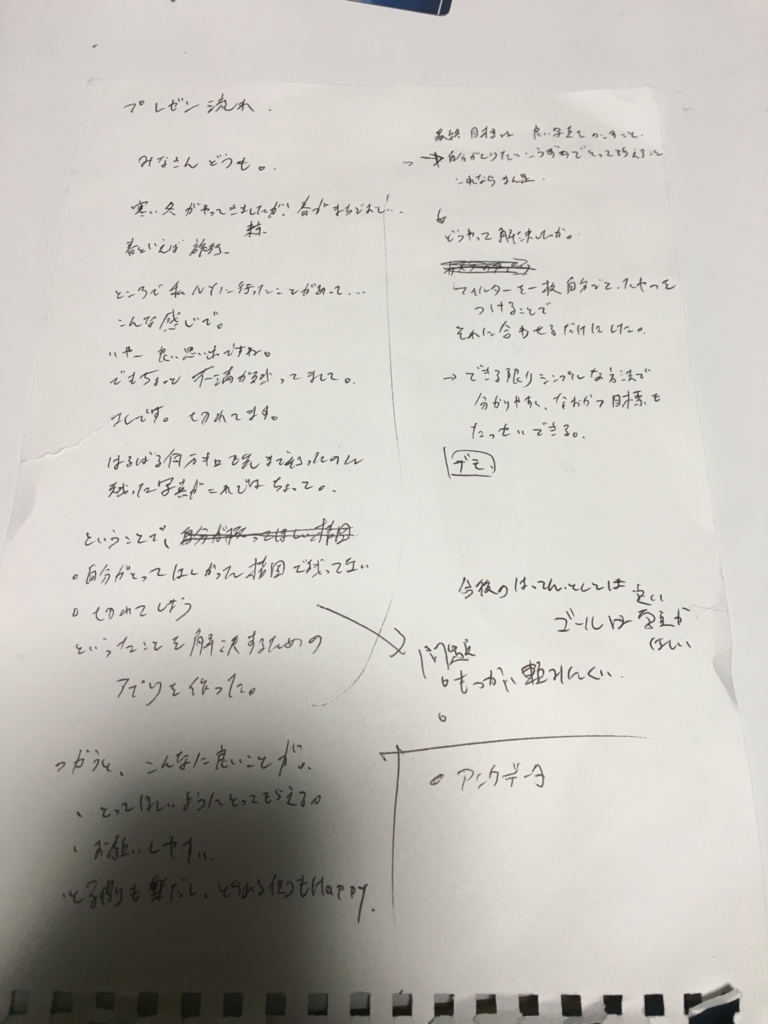 プレゼン流れ.
みなさんどうも。
寒い冬がやってきましたが、春がまちどおし…
春といえば 旅行
ところで私NYに行ったことがあって…
こんな感じで。
いやー 良い思い出ですね。
でもちょっと不満が残ってまして。
です。切れてます。
はるばる何万キロも
残った写真がこれではちょって。
ということで、
自分がとってほしかった構図で残ってない
切れてしまう
といったことを解決するための
アプリを作った。
つかうと、こんなに良いことが。
、とってほしいようにとってもらえる。
、お願いしやすい
、とる側も楽だし、とられる側もHappy.
最終目標は 良い写真をのこすこと.
→ 自分がとりたいこうずでとってもらえること
これなら
どうやって解決したか。
フィルターを一枚自分でとったやつを
つけることで
それに合わせるだけにした。
→ できる限りシンプルな方法で
分かりやすく、なおかつ目標も
たっせいできる。
デモ.
今後のはってんとしては
良い
ゴールは写真が
ほしい
問題
もっかい頼みにくい.
アンケート